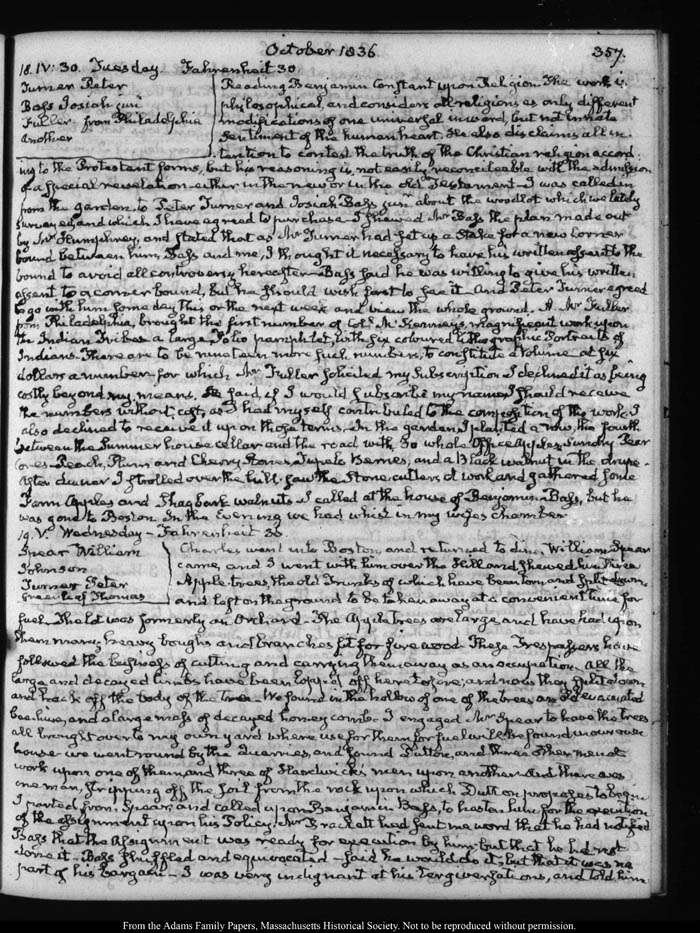 October 1836.
357.
18. IV: 30. Tuesday Fahrenheit 30
Turner Peter
Bass Josiah jun
Fuller from Philadelphia
Another
Reading Benjamin Constant upon Religion. The work is
philosophical, and considers all religions as only different
modifications of one universal inward, but not innate
Sentiment of the human heart. He also disclaims all in-
tention to contest the truth of the Christian religion accord-
ing to the Protestant forms, but his reasoning is not easily reconcileable with the admission
of a special revelation either in the new or in the old Testament. I was called in
from the garden to Peter Turner and Josiah Bass jun. about the woodlot which we lately
surveyed and which I have agreed to purchase. I shewed Mr Bass the plan made out
by Mr Humphrey, and stated that as Mr Turner had set up a Stake for a new Corner
bound between him, Bass and me, I thought it necessary to have his written assent to the
bound to avoid all controversy hereafter. Bass said he was willing to give his written
assent to a corner bound, but he should wish first to see it. And Peter Turner agreed
to go with him some day this or the next week and view the whole ground. A Mr Fuller
from Philadelphia, brought the first number of Col. McKenney's magnificent work upon
the Indian Tribes a large Folio pamphlet, with six coloured lithographic Portraits of
Indians. There are to be nineteen more such numbers, to constitute a volume at six
dollars a number for which Mr Fuller solicited my Subscription. I declined it as being
costly beyond my means. He said, if I would subscribe my name I should receive
the numbers without cost, as I had myself contributed to the composition of the work. I
also declined to receive it upon those terms. In the garden I planted a row, the fourth
between the Summer house cellar and the road with 50 whole Office Apples, Sundry Pear
cores Peach, Plum and Cherry Stones Tupelo Berries, and a Black walnut in the drupe.
After dinner I strolled over the hill, saw the Stone cutters at work and gathered some
Fann Apples and Shagbark walnuts. I called at the house of Benjamin Bass, but he
was gone to Boston. In the Evening we had whist in my wife's chamber.
19. V. Wednesday - Fahrenheit 36.
Spear William
Johnson
Turner Peter
Greenleaf Thomas
Charles went into Boston, and returned to dine. William Spear
came, and I went with him over the Hill and shewed him three
Apple trees the old Trunks of which have been torn and split down,
and left on the ground to be taken away at a convenient time for
fuel. The lot was formerly an Orchard. The Apple trees are large and have had upon
them many heavy boughs and branches fit for fire wood. These Trespassers have
followed the business of cutting and carrying them away as an occupation. All the
large and decayed limbs have been lopp'd off heretofore, and now they split down
and hack off the body of the tree. We found in the hollow of one of the trees an old evacuated
bee hive, and a large mass of decayed honey comb. I engaged Mr Spear to have the trees
all brought over to my own yard where use for them for fuel will be found in our own
house. We went round by the Quarries, and found Dutton, and three other men at
work upon one of them and three of Hardwick's men upon another. And there was
one man, stripping off the soil from the rock upon which Dutton proposes to begin.
I parted from Spear, and called upon Benjamin Bass, to hasten him for the execution
of the assignment upon his Policy. Mr Brackett had sent me word that he had notified
Bass that the Assignment was ready for execution by him; but that he had not
done it. Bass shuffled and equivocated - said he would do it; but that it was no
part of his bargain. I was very indignant at his tergiversations, and told him
From the Adams Family Papers, Massachusetts Historical Society. Not to be reproduced without permission.